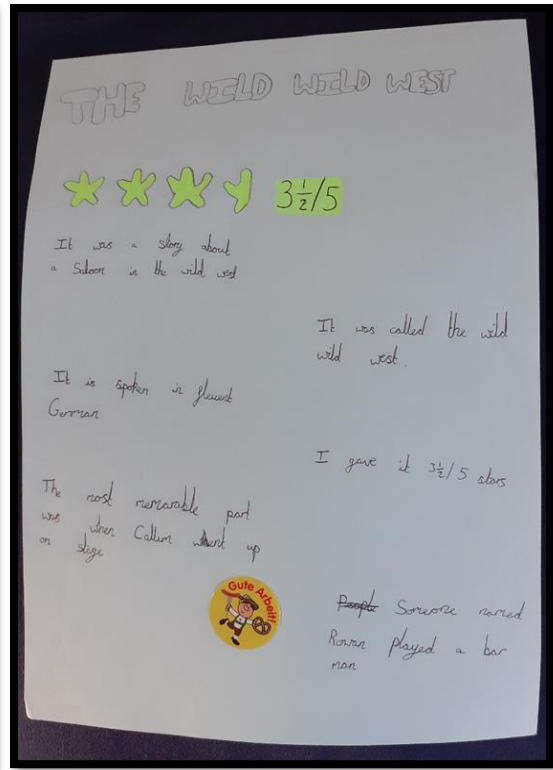 THE WILD WILD WEST
3½/5
It was a story about
a Saloon in the wild west
It was called the wild
wild west.
It is spoken in fluwent
German
I gave it 3½/5 stars
The most memorable part
was when Callum went up
on stage
Gute Arbeit!
People Someone named
Rowan played a bar
man